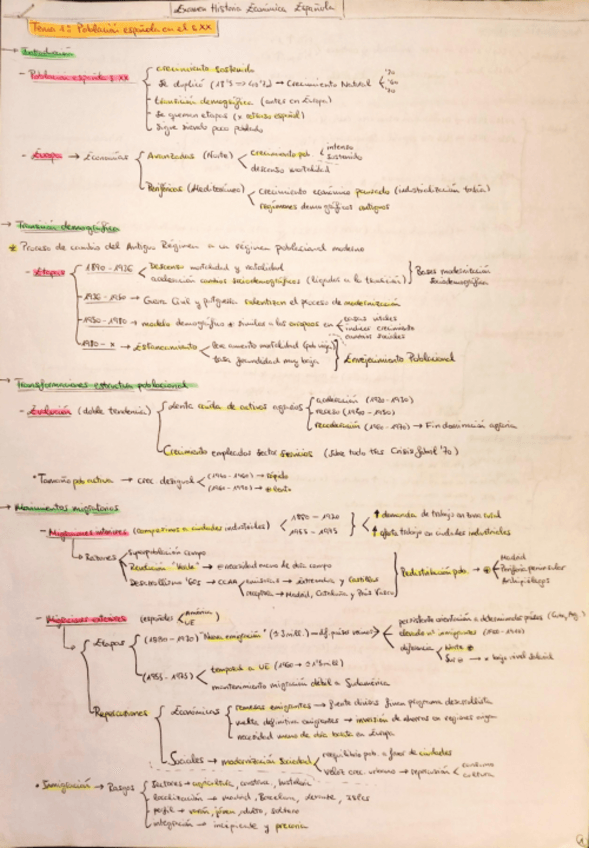 Examen Historia Económica Española
Tema 1: Población española en el s.XX
→ Introducción
- Población española s.XX
crecimiento sostenido
Se duplicó → Crecimiento Natural
transición demográfica (antes en Europa)
Se queman etapas (x retraso español)
Sigue siendo poco poblado
- Europa → Economías
Avanzadas (Norte)
crecimiento pob.
intenso
sostenido
descenso mortalidad
Periféricas (Mediterráneo)
Crecimiento económico pausado (industrialización tardía)
regímenes demográficos antiguos
→ Transición demográfica
* Proceso de cambio del Antiguo Régimen a un régimen poblacional moderno
- Etapas
1890-1936
Descenso mortalidad y natalidad
aceleración cambios sociodemográficos (ligados a la tradición)
Bases modernización sociodemográfica
1936-1950 → Guerra Civil y postguerra ralentizan el proceso de modernización
1950-1980 → modelo demográfico + similar a los europeos en
tasas vitales
índices crecimiento
cambios sociales
1980-x → Estancamiento
leve aumento mortalidad (pob. vieja)
tasa fecundidad muy baja
Envejecimiento Poblacional
→ Transformaciones estructura poblacional
- Evolución (doble tendencia)
lenta caída de activos agrarios
aceleración (1920-1930)
retroceso (1940-1950)
reaceleración (1960-1970) → Fin dominación agraria
Crecimiento empleados sector servicios (sobre todo tras Crisis '70)
• Tamaño pob. activa → crec. desigual
→ rápido
→ + lento
→ Movimientos migratorios
- Migraciones interiores (campesinos a ciudades industriales)
1880-1930
1955-1975
↑ demanda de trabajo en zona rural
↑ oferta trabajo en ciudades industriales
Razones
Superpoblación campo
Revolución "Verde" → - necesidad mano de obra campo
Desarrollismo '60s → CCAA
emisoras → Extremadura y Castillas
receptoras → Madrid, Cataluña y País Vasco
Redistribución pob. → +
Madrid
Periferia peninsular
Archipiélagos
- Migraciones exteriores (españoles
América
UE
Etapas
(1880-1930) "Nueva emigración"
persistente orientación a determinados países (Cuba, Arg.)
elevado nº inmigrantes
diferencia
Norte +
Sur - → x bajo nivel salarial
(1955-1975)
temporal a UE
mantenimiento migración débil a Sudamérica
Repercusiones
Económicas
remesas emigrantes → fuente divisas financ. programa desarrollista
vuelta definitiva emigrantes → inversión de ahorros en regiones origen
necesidad mano de obra barata en Europa
Sociales → modernización sociedad
reequilibrio pob. a favor de ciudades
crec. urbano → repercusión
cultura
• Inmigración → Rasgos
Sectores → agricultura, construc., hostelería
localización → Madrid, Barcelona, islas
perfil → varón, joven, adulto, soltero
integración → incipiente y precaria